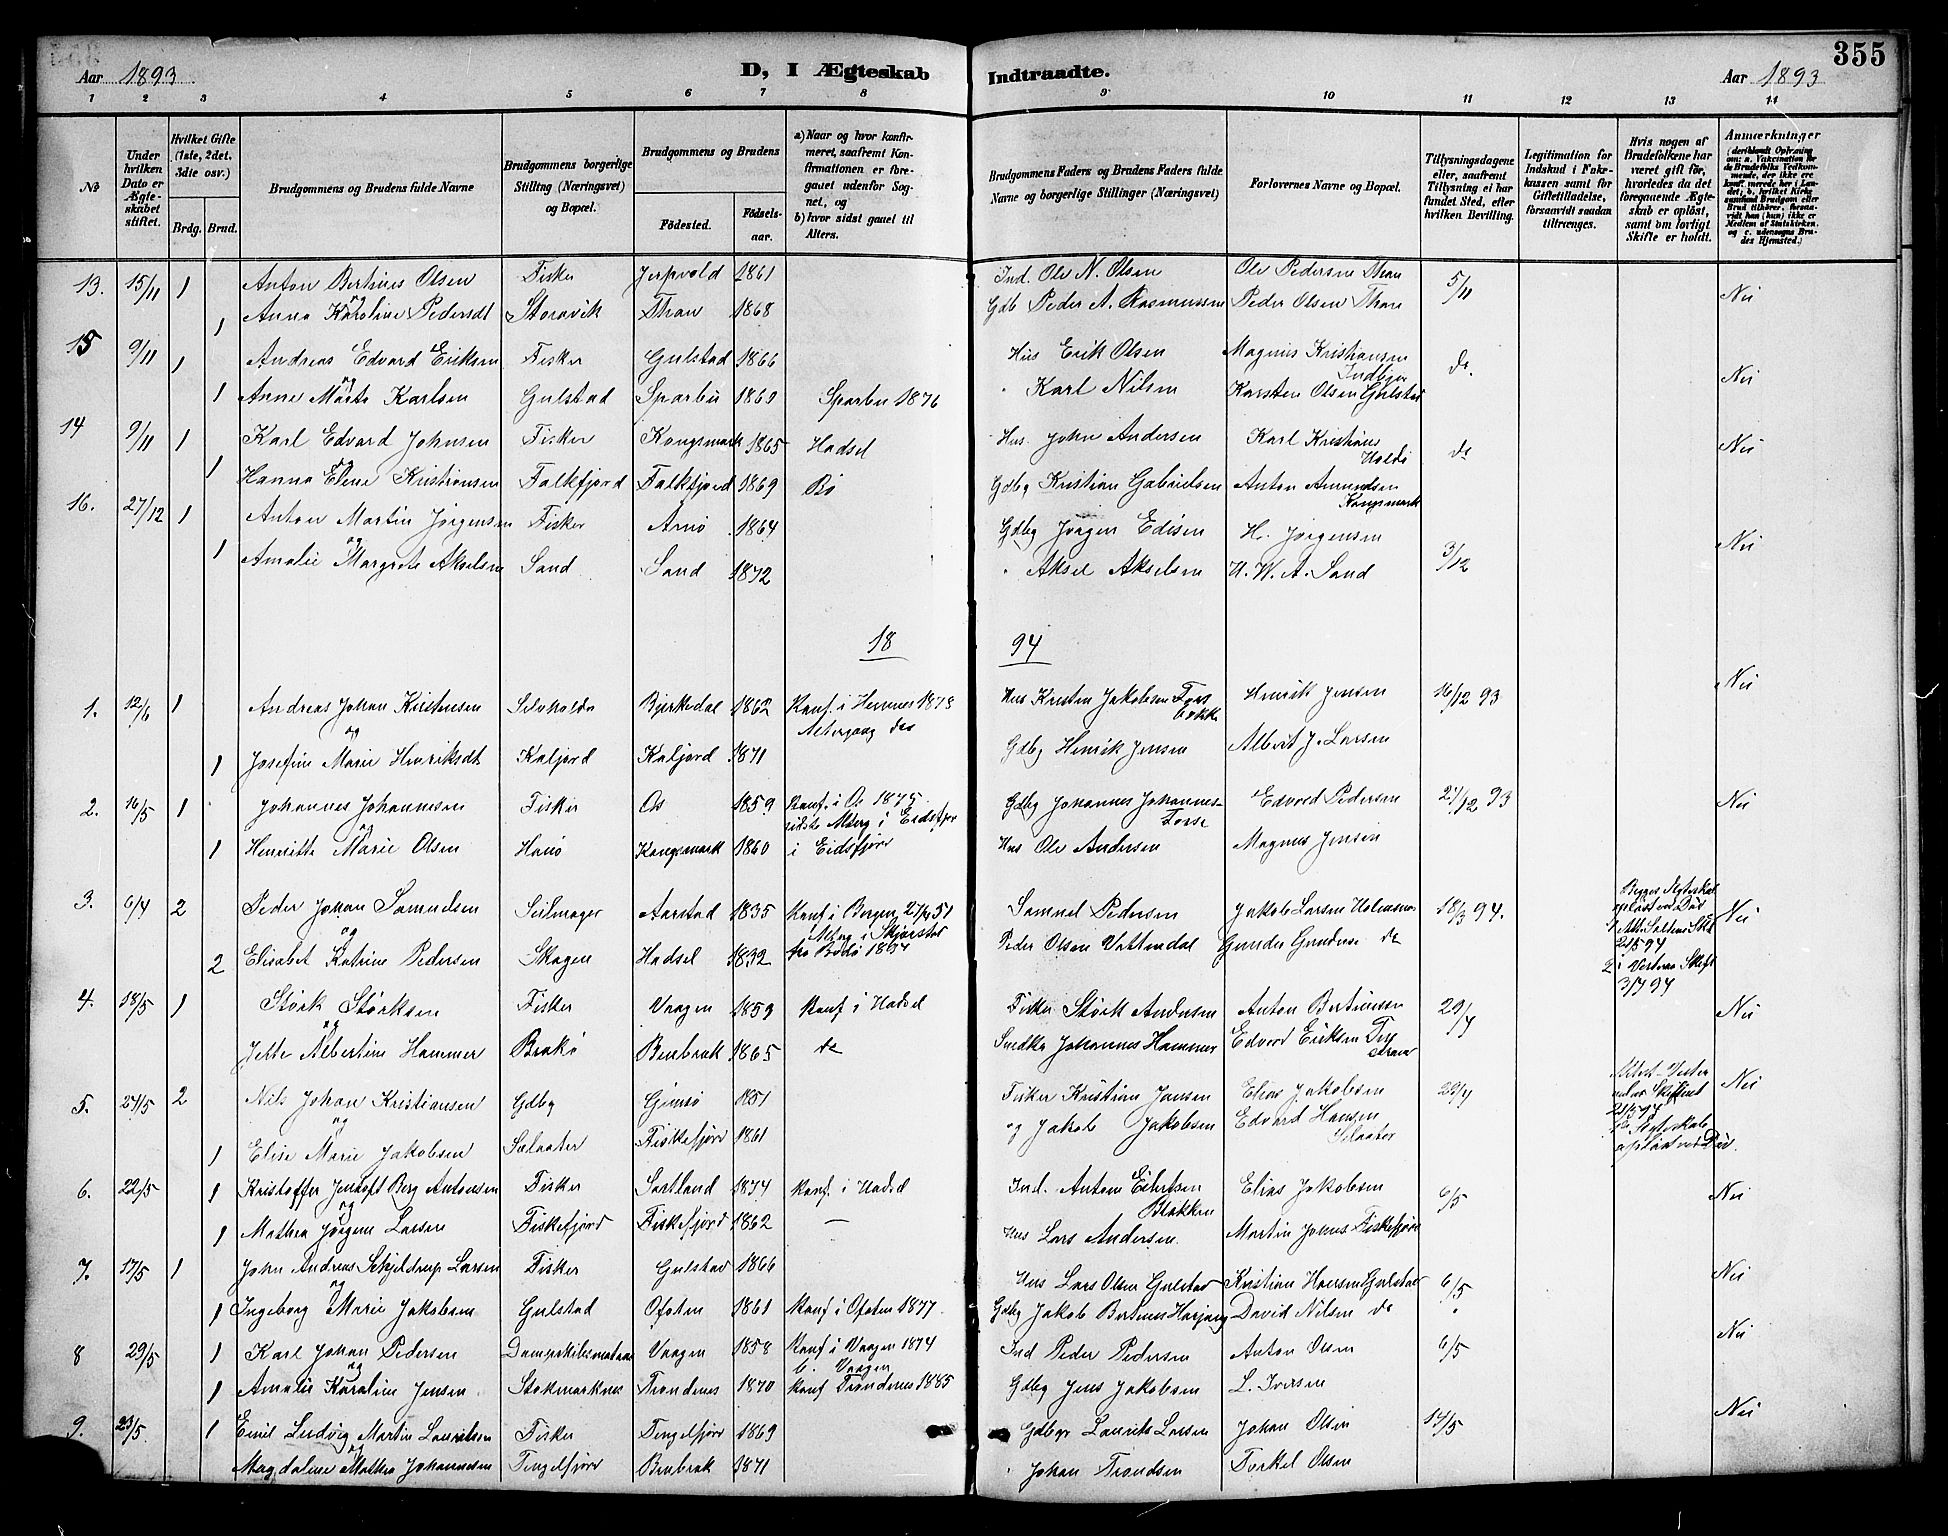 355
Aar 1893 D, I Ægteskab Indtraadte. Aar 1893
1 2 3 4 5 6 7 8 9 10 11 12 13 14
No
Under hvilken Dato er Ægteskabet stiftet.
Hvilket Gifte (1ste, 2det. 3die osv.)
Brdg. Brud.
Brudgommens og Brudens fulde Navne
Brudgommens borgerlige Stilling (Næringsvei) og Bopæl.
Brudgommens og Brudens
Fødested. Fødselsaar.
a) Naar og hvor konfirmeret, saafremt Konfirmationen er foregaaet udenfor Sognet, og
b) hvor sidst gaaet til Alters.
Brudgommens Faders og Brudens Faders fulde Navne og borgerlige Stillinger (Næringsvei)
Forlovernes Navne og Bopæl.
Tillysningsdagene eller, saafremt Tillysning ei har fundet Sted, efter hvilken Bevilling.
Legitimation for Indskud i Fakrkassen samt for Giftetilladelse, forsaavidt saadan tiltrænges.
Hvis nogen af Brudefolkene har været gift før, hvorledes da det foregaaende Ægteskab er opløst, samt om lovligt Skifte er holdt.
Anmærkninger
13. 15/11 1 Anton Berthius Olsen Fisker Jerpvold 1861 Ind. Ole N. Olsen Ole Pedersen Than 5/11 Nei
og
1 Anna Karoline Pedersdt Storovik Than 1868 Gdb Peder A. Rasmussen Peder Olsen Than
15 9/11 1 Andreas Edvard Eriksen Fisker Gulstad 1866 Hus Erik Olsen Magnus Kristiansen Indbjor do. Nei
og
1 Anne Marta Karlsen Gulstad Sparbu 1869 Sparbu 1876 " Karl Nilsen Karsten Olsen Gulstad
14 9/11 1 Karl Edvard Johnsen Fisker Kongsmark 1865 Hadsel Hus. John Andersen Karl Kristians Holdø do Nei
og
1 Hanna Elene Kristiansen Falkfjord Falkfjord 1869 Bø Gdbg Kristian Gabrielsen Anton Amundsen Kongsmark
16. 27/12 1 Anton Martin Jørgensen Fisker Arnø 1864 Gdbg Jørgen Edisen H. Jørgensen 3/12 Nei
og
1 Amalie Margrete Akselsen Sand Sand 1872 " Aksel Akselsen H. W. A. Sand
18 94
1. 12/6 1 Andreas Johan Kristensen Selvholdn Bjerkedal 1862 Konf. i Hemnes 1878 Altergang das Hus Kristen Jakobsen Fors Henrik Jensen 16/12 93 Nei
og
1 Josefine Marie Henriksdt Kaljord Kaljord 1871 Gdbg Henrik Jensen Albert J. Larsen
2. 16/5 1 Johannes Johannesen Fisker Os 1859 Konf. i Os 1875. sidste Alterg i Eidsfjor Gdbg Johannes Johannes- Forse Edvard Pedersen 27/12 93 Nei
og
1 Henritte Marie Olsen Hanø Kongsmark 1860 i Eidsfjord Hus Ole Andersen Magnus Jensen
3. 6/4 2 Peder Johan Samuelsen Seilmager Aarstad 1835 Konf i Bergen, 27/4 51 Alterg i Skjærstad fra Bodø 1894 Samuel Pedersen Jakob Larsen Holmsnes 18/3 94. Begges Ægteskab opløst ved Død Nei
og
2 Elisabet Katrine Pedersen Skagen Hadsel 1832 Peder Olsen Vattendal Gunder Gundersen do
4. 18/5 1 Størk Størksen Fisker Vaagen 1859 Konf i Hadsel Fisker Størk Andersen Anton Bertinussen 29/4 Nei
og
Jette Albertine Hammer Brokø Benbrak 1865 do Snedker Johannes Hammer Edvard Eriksen
5. 27/5 2 Nils Johan Kristiansen Gdbg Gimsø 1851 Fisker Kristian Jansen Elias Jakobsen 22/4 Nei
og
1 Elise Marie Jakobsen Sælaater Fiskefjord 1861 og Jakob Jakobsen Edvard Hansen Selaater
Ægteskab opløst ved Død.
6. 22/5 1 Kristoffer Jentoft Berg Antonsen Fisker Sortland 1874 Konf. i Hadsel Ind. Anton Eilertsen Blokken Elias Jakobsen 6/5 Nei
og
1 Mathea Jørgine Larsen Fiskefjord Fiskefjord 1862 — Hus Lars Andersen. Martin Johns Fiskefjord
7. 17/5 1 John Andreas Schjeldrup Larsen Fisker Gulstad 1866 Hus Lars Olsen Gulstad Kristian Hansen Gulstad 6/5 Nei
og
1 Ingeborg Marie Jakobsen Gulstad Ofoten 1861 Konf i Ofoten 1877. Gdbg Jakob Bertinus Harjang David Nilsen do "
8 29/5 1 Karl Johan Pedersen Dampskibsmatros Vaagen 1858 Konf i Vaagen 1874 b. Vaagen Ind Peder Pedersen Anton Olsen 6/5 Nei
og
1 Amalie Karoline Jensen. Stokmarknes Trondenes 1870 Konf Trondenes 1885 Gdbg Jens Jakobsen L. Iversen
9. 23/5. 1 Emil Ludvig Martin Lauritsen Fisker Tengelfjord 1869 Gdbgr Laurits Larsen Johan Olsen 14/5 Nei
og
Magdaline Mathea Johannesen Tengelfjord Benbrak 1871 " Johan Trondsen Torkel Olsen